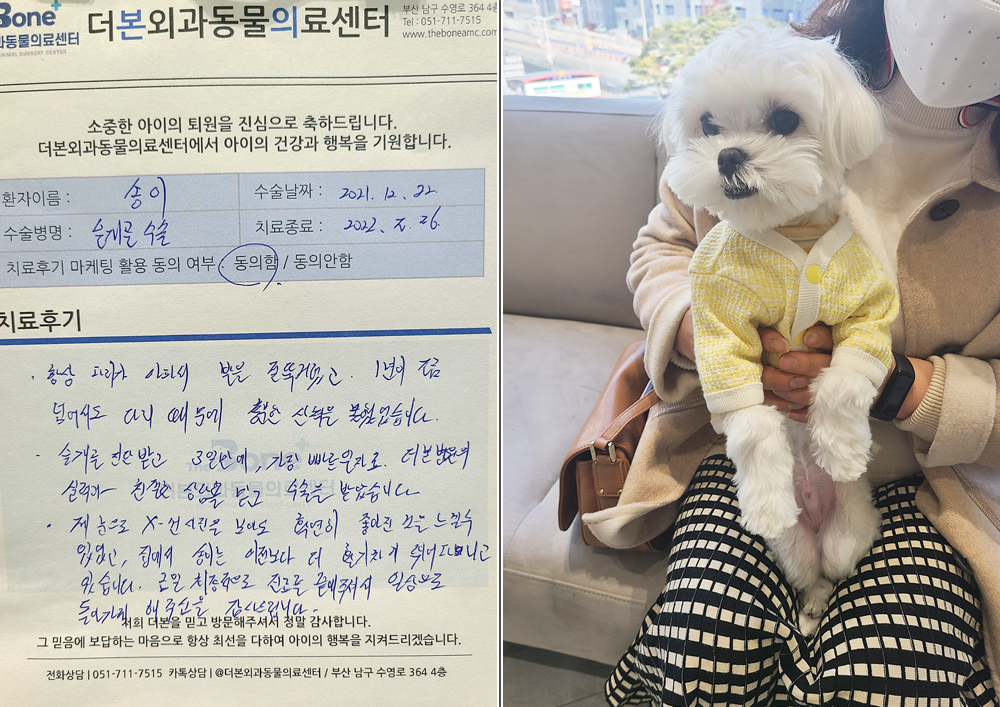 Bone
과동물의료센터
ANIMAL SURGERY CENTER
더본외과동물의료센터
부산 남구 수영로 364 4층
Tel : 051-711-7515
www.theboneamc.com
소중한 아이의 퇴원을 진심으로 축하드립니다.
더본외과동물의료센터에서 아이의 건강과 행복을 기원합니다.
환자이름 : 송이
수술날짜 : 2021. 12. 22
수술병명 : 슬개골 수술
치료종료 : 2022. 2. 26.
치료후기 마케팅 활용 동의 여부 : 동의함 / 동의안함
치료후기
· 항상 다리가 아파서 발을 절뚝거렸고. 1년이 조금
넘어서도 다시 때문에 산책을 못했었습니다.
· 슬개골 진단받고 3일만에, 가장 빠른일자로. 더본
실력과 친절한 상담을 받고 수술을 받았습니다
· 제 눈으로 X-선 사진을 보아도 확연히 좋아진 것을 느낄수
있었고, 집에서 송이는 이전보다 더 활기차게 뛰어다니고
있습니다. 금일 최종적으로 진료를 끝내주셔서 일상으로
돌아가게 해주심을 감사드립니다.
저희 더본을 믿고 방문해주셔서 정말 감사합니다.
그 믿음에 보답하는 마음으로 항상 최선을 다하여 아이의 행복을 지켜드리겠습니다.
전화상담 | 051-711-7515 카톡상담 | @더본외과동물의료센터 / 부산 남구 수영로 364 4층